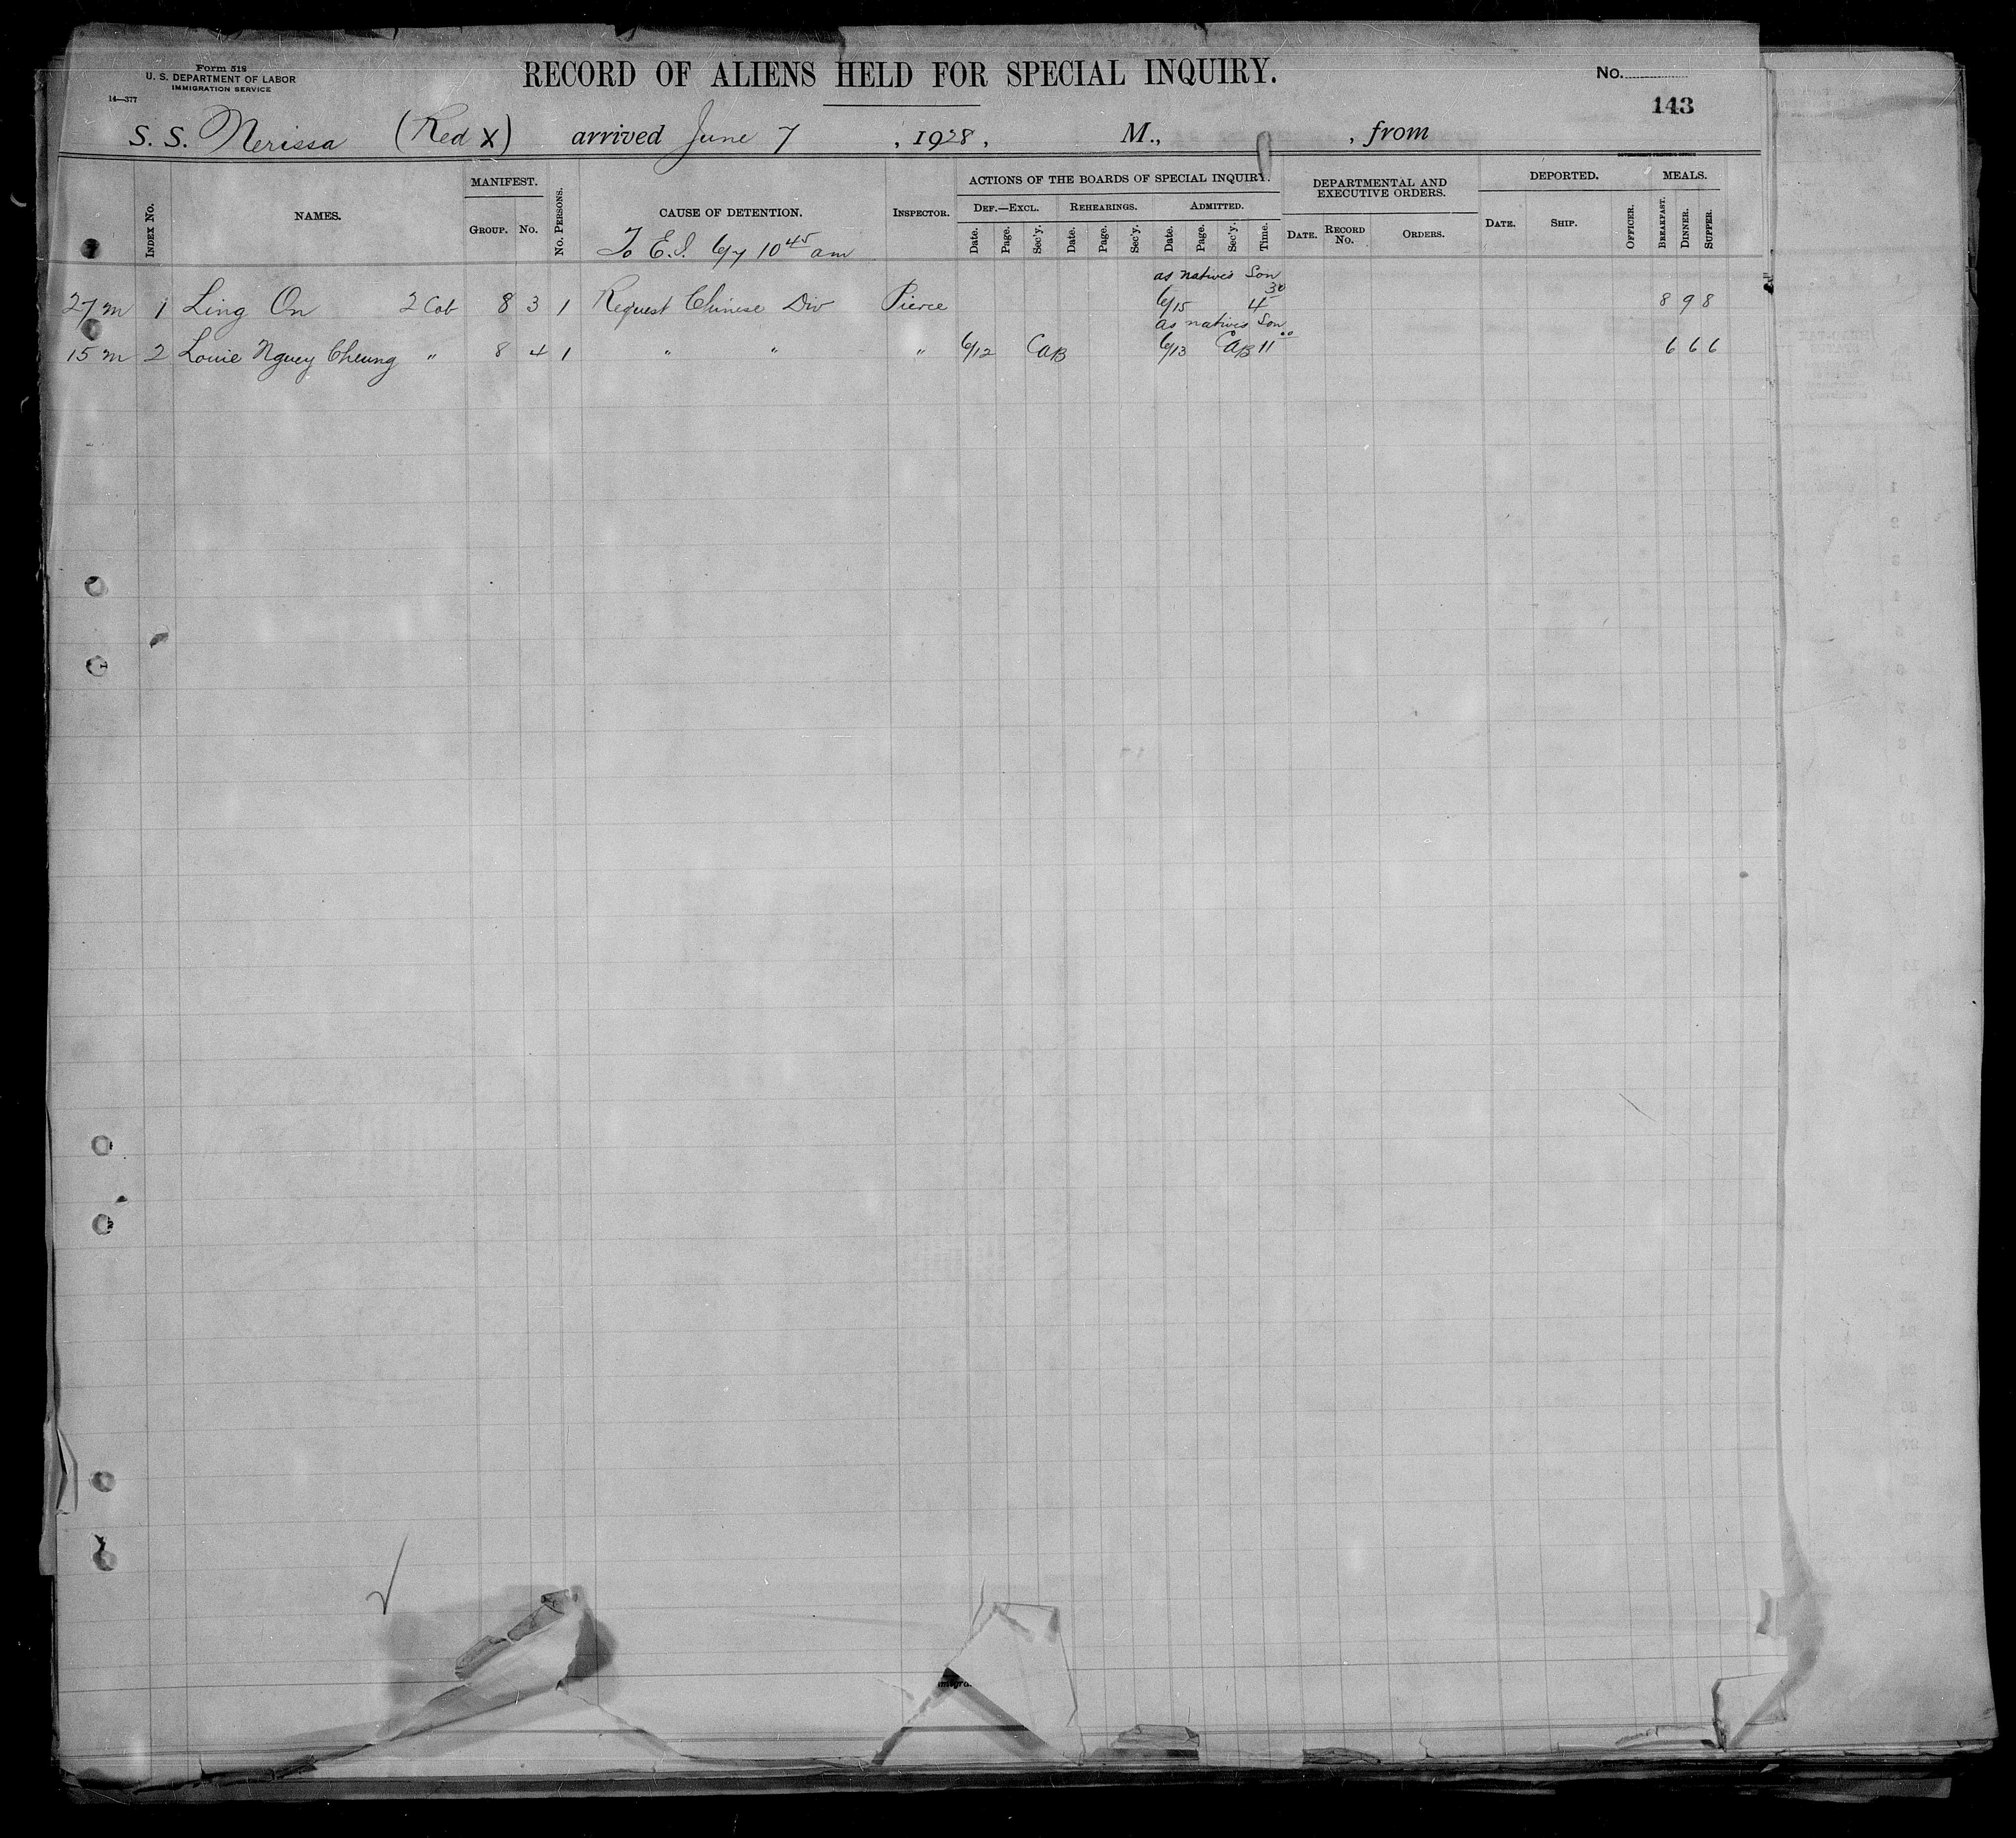 Form 518
U. S. DEPARTMENT OF LABOR
IMMIGRATION SERVICE
14—377
RECORD OF ALIENS HELD FOR SPECIAL INQUIRY.
No.
143
S. S. Nerissa (Red X) arrived June 7, 1928, M., , from
INDEX NO. NAMES. MANIFEST. GROUP. NO. NO. PERSONS. CAUSE OF DETENTION. INSPECTOR. ACTIONS OF THE BOARDS OF SPECIAL INQUIRY. DEPARTMENTAL AND EXECUTIVE ORDERS. DEPORTED. MEALS.
DEF.—EXCL. REHEARINGS. ADMITTED.
Date. Page. Sec'y. Date. Page. Sec'y. Date. Page. Sec'y. Time. DATE. RECORD NO. ORDERS. DATE. SHIP. OFFICER. BREAKFAST. DINNER. SUPPER.
To E.I. 6/7 10 45 am
as natives Son
27 m 1 Ling On 2 Cab 8 3 1 Request Chinese Div Pierce 6/15 4 30 8 9 8
as natives Son
15 m 2 Louie Nguey Cheung " 8 4 1 " " " 6/12 CAB 6/13 CAB 11 00 6 6 6